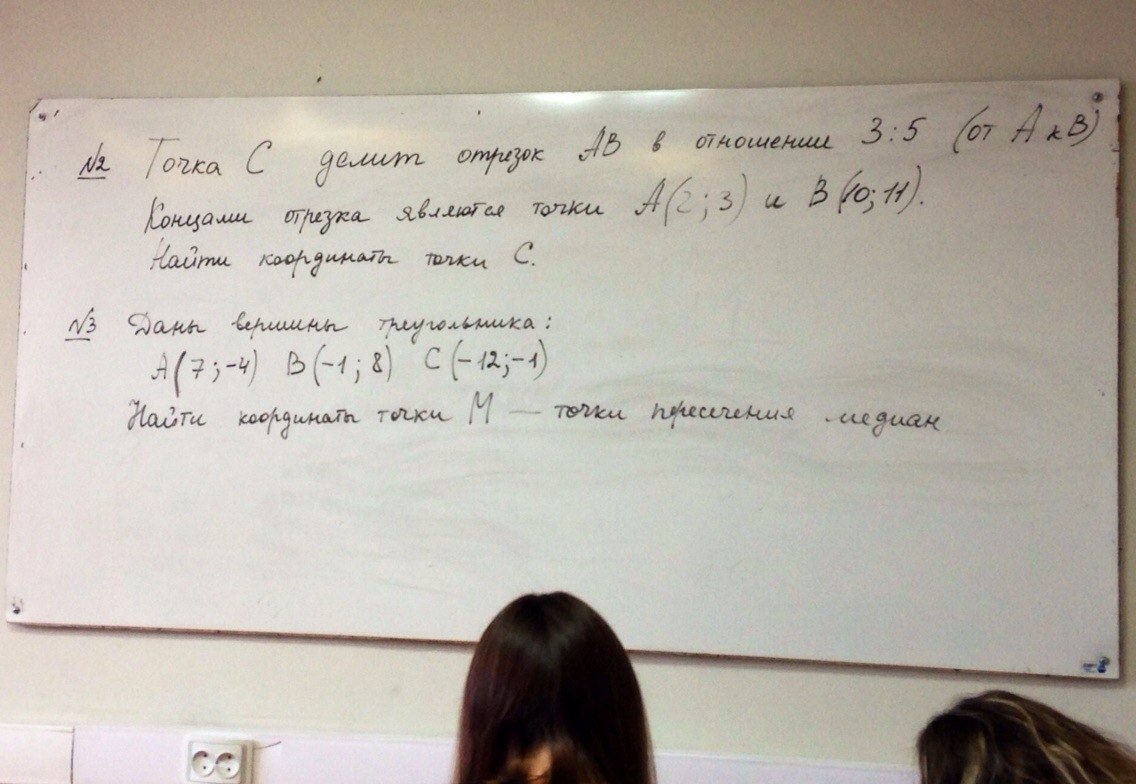 №2 Точка С делит отрезок АВ в отношении 3:5 (от А к В)
Концами отрезка являются точки А(2;3) и В(10;11).
Найти координаты точки С.
№3 Даны вершины треугольника:
А(7;-4) В(-1;8) С(-12;-1)
Найти координаты точки М — точки пересечения медиан